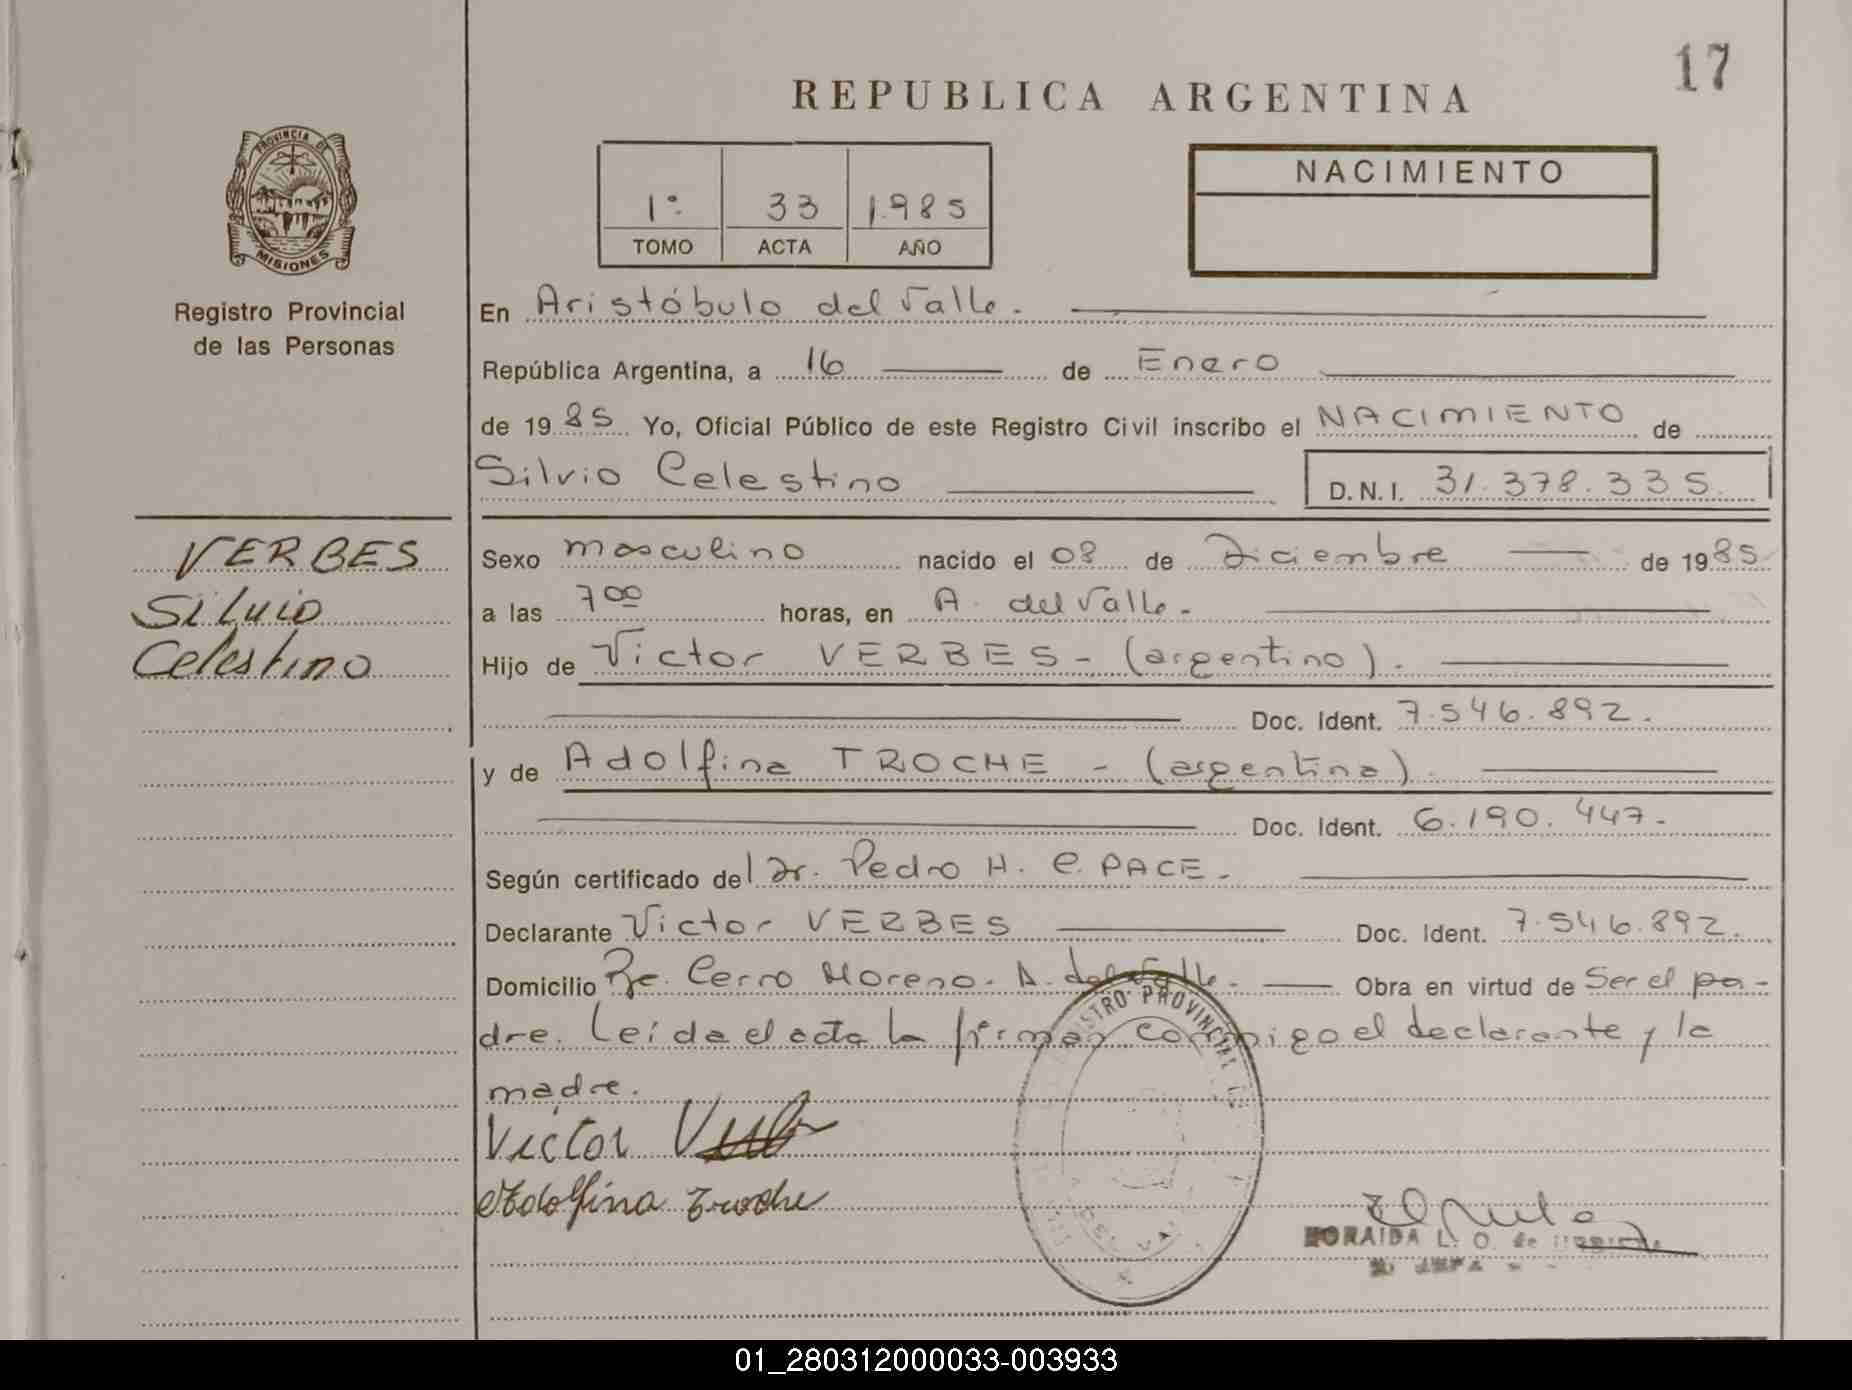 17
REPUBLICA ARGENTINA
PROVINCIA DE
MISIONES
Registro Provincial
de las Personas
1º 33 1.985
TOMO ACTA AÑO
NACIMIENTO
En Aristóbulo del Valle.
República Argentina, a 16 de Enero
de 1985 Yo, Oficial Público de este Registro Civil inscribo el NACIMIENTO de
Silvio Celestino D.N.I. 31.378.335.
VERBES
Silvio
Celestino
Sexo masculino nacido el 08 de Diciembre de 1985
a las 7 00 horas, en A. del Valle.
Hijo de Victor VERBES - (argentino).
Doc. Ident. 7.546.892.
y de Adolfina TROCHE - (argentina).
Doc. Ident. 6.190.447.
Según certificado del Dr. Pedro H. C. PACE.
Declarante Victor VERBES Doc. Ident. 7.546.892.
Domicilio Pje. Cerro Moreno. A. del Valle. Obra en virtud de Ser el pa-
dre. Leída el acta la firman conmigo el declarante y la
madre.
Victor
Adolfina Troche
REGISTRO PROVINCIAL
ZORAIDA L. O. de
01_280312000033-003933